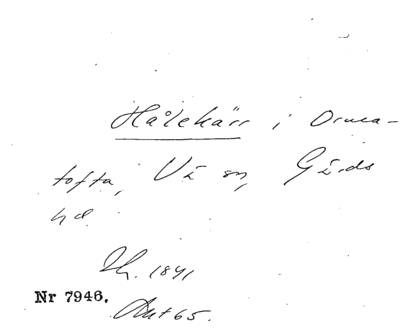 Hålekärr i Orma-
tofta, Vä sn, Gärds
hd.
Th. 1841
Nr 7946. Avt 65.